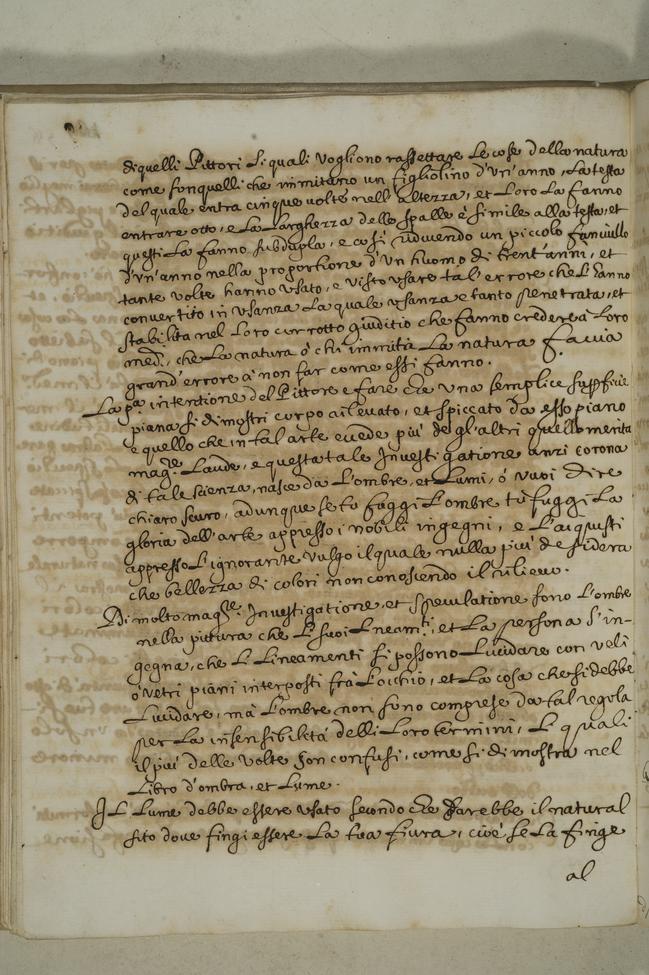 di quelli Pittori li quali vogliono rassettare le cose della natura
come son quelli che immitano un figliolino d'un'anno, la testa
del quale entra cinque volte nell'altezza, et loro la fanno
entrare otto, e la larghezza delle spalle è simile alla testa, et
questi la fanno subdupla, e così riduvendo un piccolo fanciullo
d'un'anno nella proportione d'un huomo di trent'anni, et
tante volte hanno usato, e visto usare tal'errore che l'anno
convertito in usanza la quale usanza e tanto penetrata, et
stabilita nel loro corrotto giuditio che fanno credere à loro
med.i, che la natura ò chi immita la natura faccia
grand'errore à non far come essi fanno.
La p.a intentione del Pittore e fare che una semplice superficie
piana si dimostri corpo rilevato, et spiccato da esso piano
e quello che in tal arte eccede più de gl'altri quello merita
mag.re laude, e questa tale Investigatione anzi corona
di tale scienza, nasce da l'ombre, et lumi, ò vuoi dire
chiaro scuro, adunque se tu fuggi l'ombre tu fuggi la
gloria dell'arte appresso i nobili ingegni, e l'acquisti
appresso l'ignorante vulgo il quale nulla più desidera
che bellezza di colori non conoscendo il rilievo.
Di molto mag.re Investigatione, et speculatione sono l'ombre
nella pittura che li suoi lineam.ti, et la persona s'in-
gegna, che li lineamenti si possono lucidare con veli
ò vetri piani interposti frà l'occhio, et la cosa che si debbe
lucidare, mà l'ombre non sono comprese da tal regola
per la insensibilità delli loro termini, li quali
il più delle volte son confusi, come si dimostra nel
libro d'ombra, et lume.
Il lume debbe essere usato secondo che darebbe il natural
sito dove fingi essere la tua fiura, cioè se la finge
al